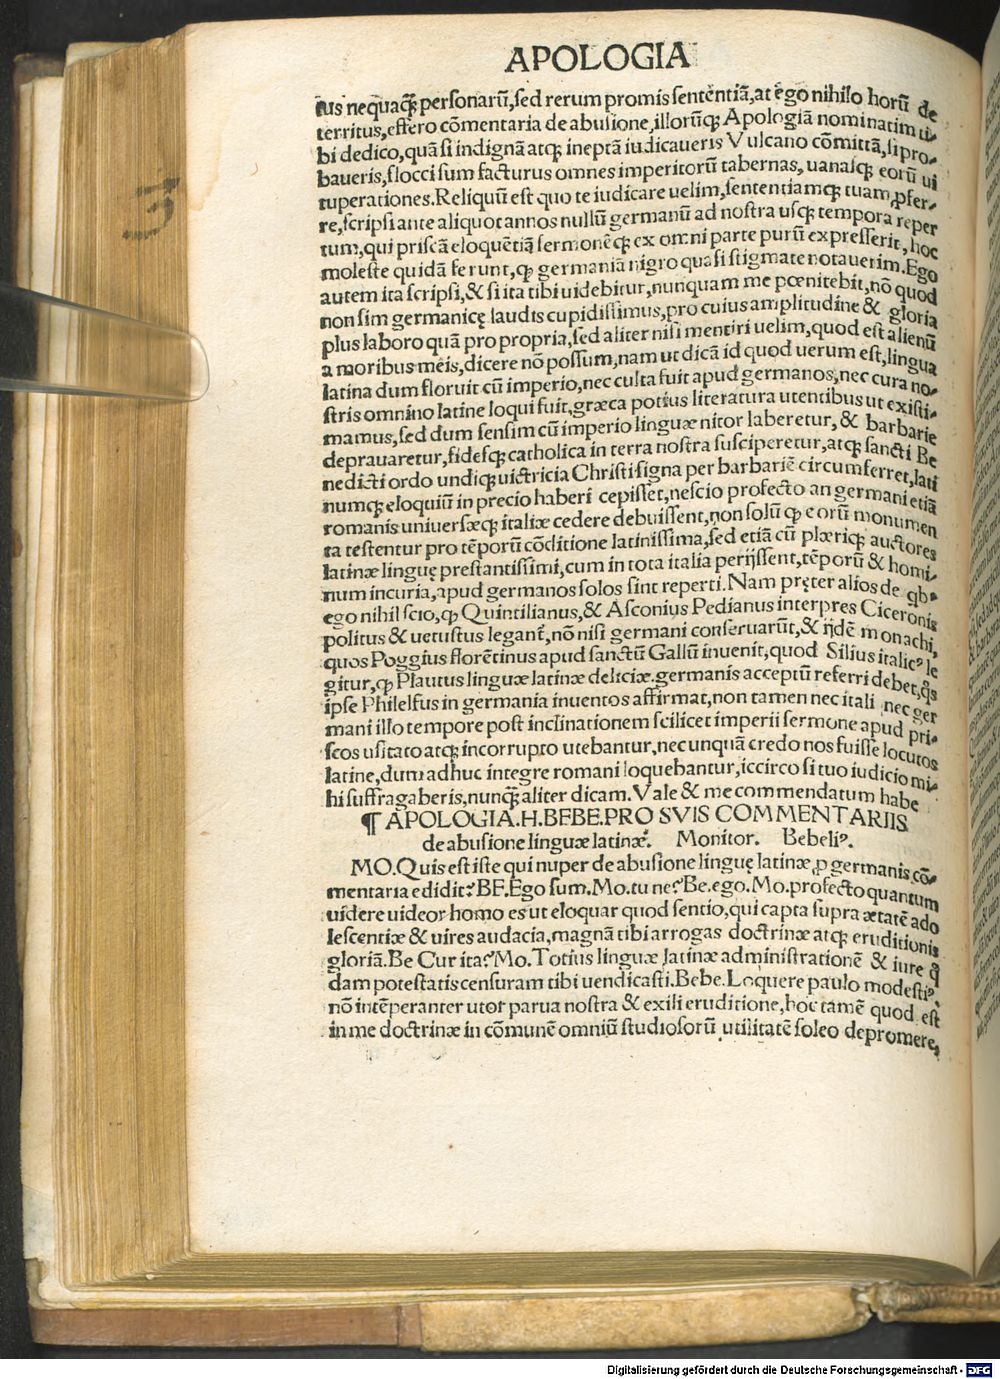 APOLOGIA
tus nequaꝗ̃ personarū, sed rerum promis sententiā, at ego nihilo horū de
territus, effero cōmentaria de abusione, illorūqꝫ Apologiā nominatim ti⸗
bi dedico, quā si indignā atqꝫ ineptā iudicaueris Vulcano cōmittā, si pro⸗
baueris, flocci sum facturus omnes imperitorū tabernas, uanasqꝫ eorū ui
tuperationes. Reliquū est quo te iudicare uelim, sententiamqꝫ tuam ꝓfer⸗
re, scripsi ante aliquot annos nullū germanū ad nostra usqꝫ tempora reper
tum, qui priscā eloquētiā sermonēqꝫ ex omni parte purū expresserit, hoc
moleste quidā ferunt, ꝙ germaniā nigro quasi stigmate notauerim. Ego
autem ita scripsi, & si ita tibi uidebitur, nunquam me pœnitebit, nō quod
non sim germanicę laudis cupidissimus, pro cuius amplitudine & gloria
plus laboro quā pro propria, sed aliter nisi mentiri uelim, quod est alienū
a moribus meis, dicere nō possum, nam ut dicā id quod uerum est, lingua
latina dum floruit cū imperio, nec culta fuit apud germanos, nec cura no⸗
stris omnino latine loqui fuit, græca potius literatura utentibus ut existi⸗
mamus, sed dum sensim cū imperio linguæ nitor laberetur, & barbarie
deprauaretur, fidesqꝫ catholica in terra nostra susciperetur, atqꝫ sancti Be
nedicti ordo undiqꝫ uictricia Christi signa per barbariē circumferret, lati
numqꝫ eloquiū in precio haberi cepisset, nescio profecto an germani etiā
romanis uniuersæqꝫ italiæ cedere debuissent, non solū ꝙ eorū monumen
ta testentur pro tēporū cōditione latinissima, sed etiā cū plæriqꝫ auctores
latinæ linguę prestantissimi, cum in tota italia perijssent, tēporū & homi⸗
num incuria, apud germanos solos sint reperti. Nam pręter alios de qb⸗
ego nihil scio, ꝙ Quintilianus, & Asconius Pedianus interpres Ciceronis
politus & uetustus legant̃, nō nisi germani conseruarūt, & ijdē monachi,
quos Poggius florētinus apud sanctū Gallū inuenit, quod Silius italicꝰ le
gitur, ꝙ Plautus linguæ latinæ deliciæ. germanis acceptū referri debet, q̄s
ipse Philelfus in germania inuentos affirmat, non tamen nec itali nec ger
mani illo tempore post inclinationem scilicet imperii sermone apud pri⸗
scos usitato atqꝫ incorrupto utebantur, nec unquā credo nos fuisse locutos
latine, dum adhuc integre romani loquebantur, iccirco si tuo iudicio mi⸗
hi suffragaberis, nunꝗ̃ aliter dicam. Vale & me commendatum habe
¶ APOLOGIA. H. BEBE. PRO SVIS COMMENTARIIS
de abusione linguæ latinæ. Monitor. Bebeliꝰ.
MO. Quis est iste qui nuper de abusione linguę latinæ ꝓ germanis cō⸗
mentaria edidit? BE. Ego sum. Mo. tu ne? Be. ego. Mo. profecto quantum
uidere uideor homo es ut eloquar quod sentio, qui capta supra ætatē ado
lescentiæ & uires audacia, magnā tibi arrogas doctrinæ atqꝫ eruditionis
gloriā. Be Cur ita? Mo. Totius linguæ latinæ administrationē & iure q̄
dam potestatis censuram tibi uendicasti. Bebe. Loquere paulo modestiꝰ,
nō intēperanter utor parua nostra & exili eruditione, hoc tamē quod est
in me doctrinæ in cōmunē omniū studiosorū utilitatē soleo depromere,
Digitalisierung gefördert durch die Deutsche Forschungsgemeinschaft - DFG